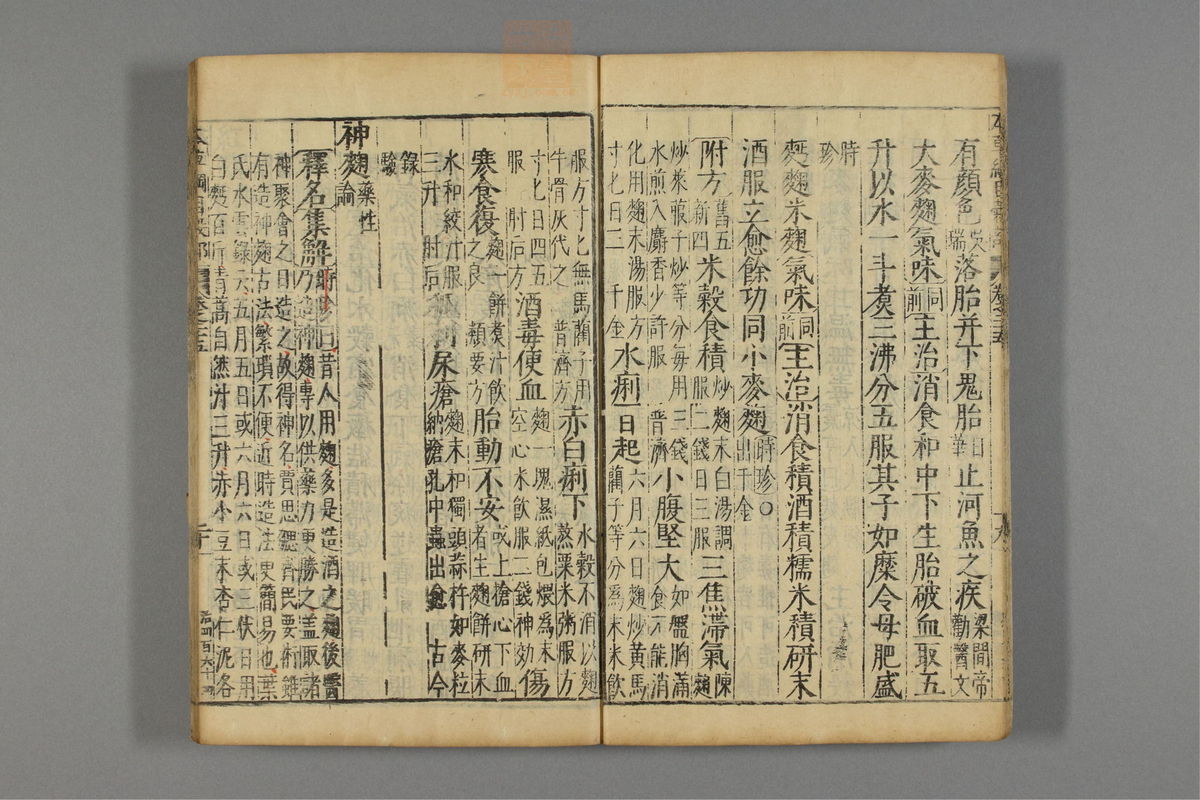 有顏色吳瑞落胎并下鬼胎日華止河魚之疾梁簡帝勸醫文
大麥麴氣味同前主治消食和中下生胎破血取五
升以水一斗煮三沸分五服其子如糜令母肥盛
時珍
麪麴米麴氣味同前主治消食積酒積糯米積研末
酒服立愈餘功同小麥麴時珍○出千金
附方舊五新四米穀食積炒麴末白湯調服二錢日三服三焦滯氣陳麴
炒萊菔子炒等分每用三錢水煎入麝香少許服普濟小腹堅大如盤胸滿食不能消
化用麴末湯服方寸匕日三千金水痢百起六月六日麴炒黃馬藺子等分爲末米飲
服方寸匕無馬藺子用牛骨灰代之普濟方赤白痢下水穀不消以麴熬粟米粥服方
寸匕日四五服肘后方酒毒便血麴一塊濕紙包煨爲末空心米飲服二錢神効傷
寒食復麴一餅煮汁飲之良類要方胎動不安或上搶心下血者生麴餅研末
水和絞汁服三升肘后狐刺尿瘡麴末和獨頭蒜杵如麥粒納瘡孔中蟲出愈古今
錄驗
神麴藥性論
釋名集解時珍曰昔人用麴多是造酒之麴後醫
乃造神麴專以供藥力更勝之蓋取諸
神聚會之日造之故得神名賈思勰齊民要術雖
有造神麴古法繁瑣不便近時造法更簡易也葉
氏水雲錄云五月五日或六月六日或三伏日用
白麪百斤青蒿自然汁三升赤小豆末杏仁泥各